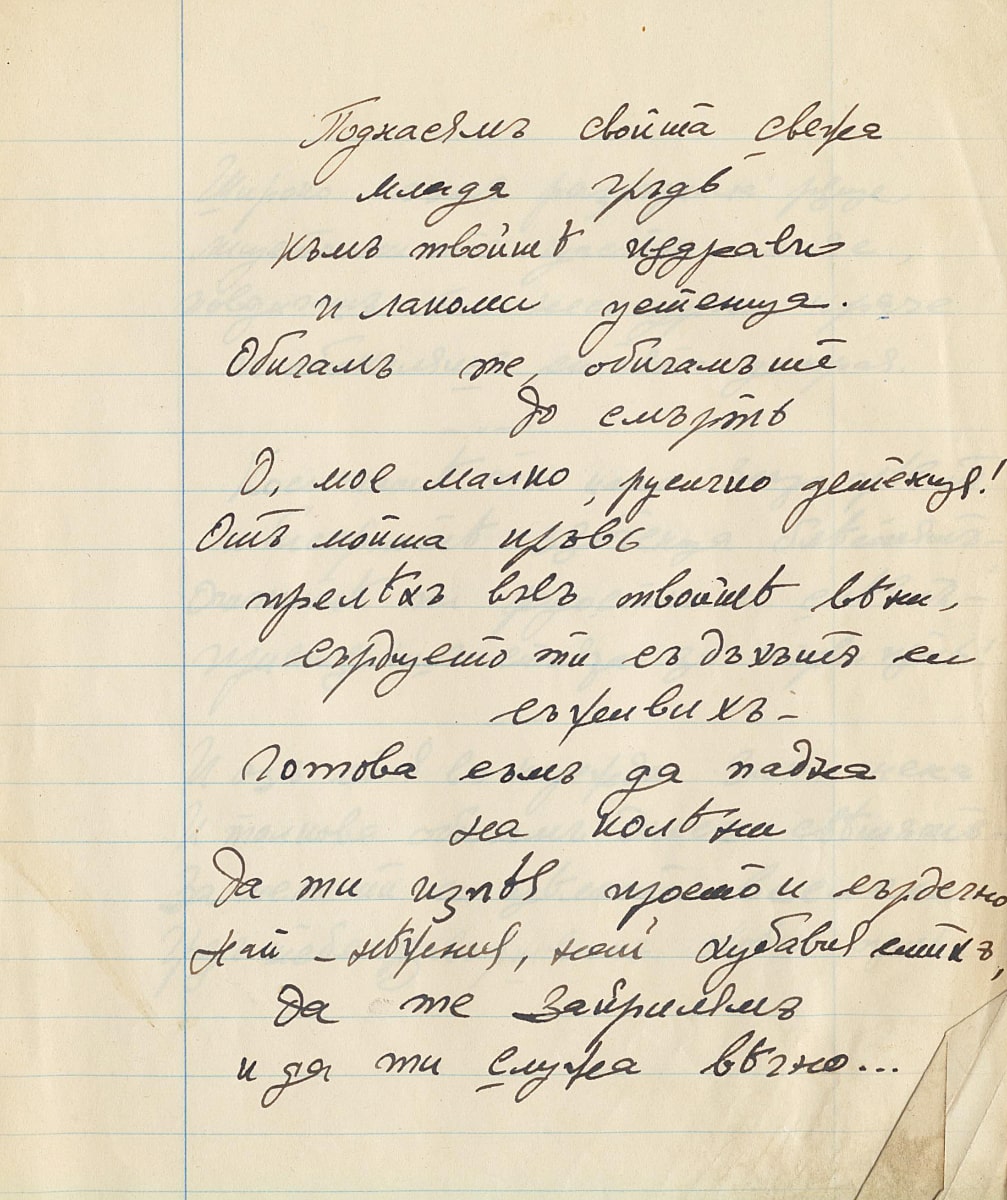 Поднасямъ свойта свежа
млада гръдь
къмъ твойтѣ и здрави
и лакоми устенца.
Обичамъ те, обичамъ те
до смърть
О, мое малко, русичко детенце!
Отъ мойта кръвь
прелѣхъ въвъ твойтѣ вѣни,
сърдцето ти съ дъхътъ си
съживихъ –
Готова съмъ да падна
на колѣни
Да ти изпѣя просто и сърдечно
Най – нѣжния, най хубавия стихъ,
да те
и да ти служа вѣчно...